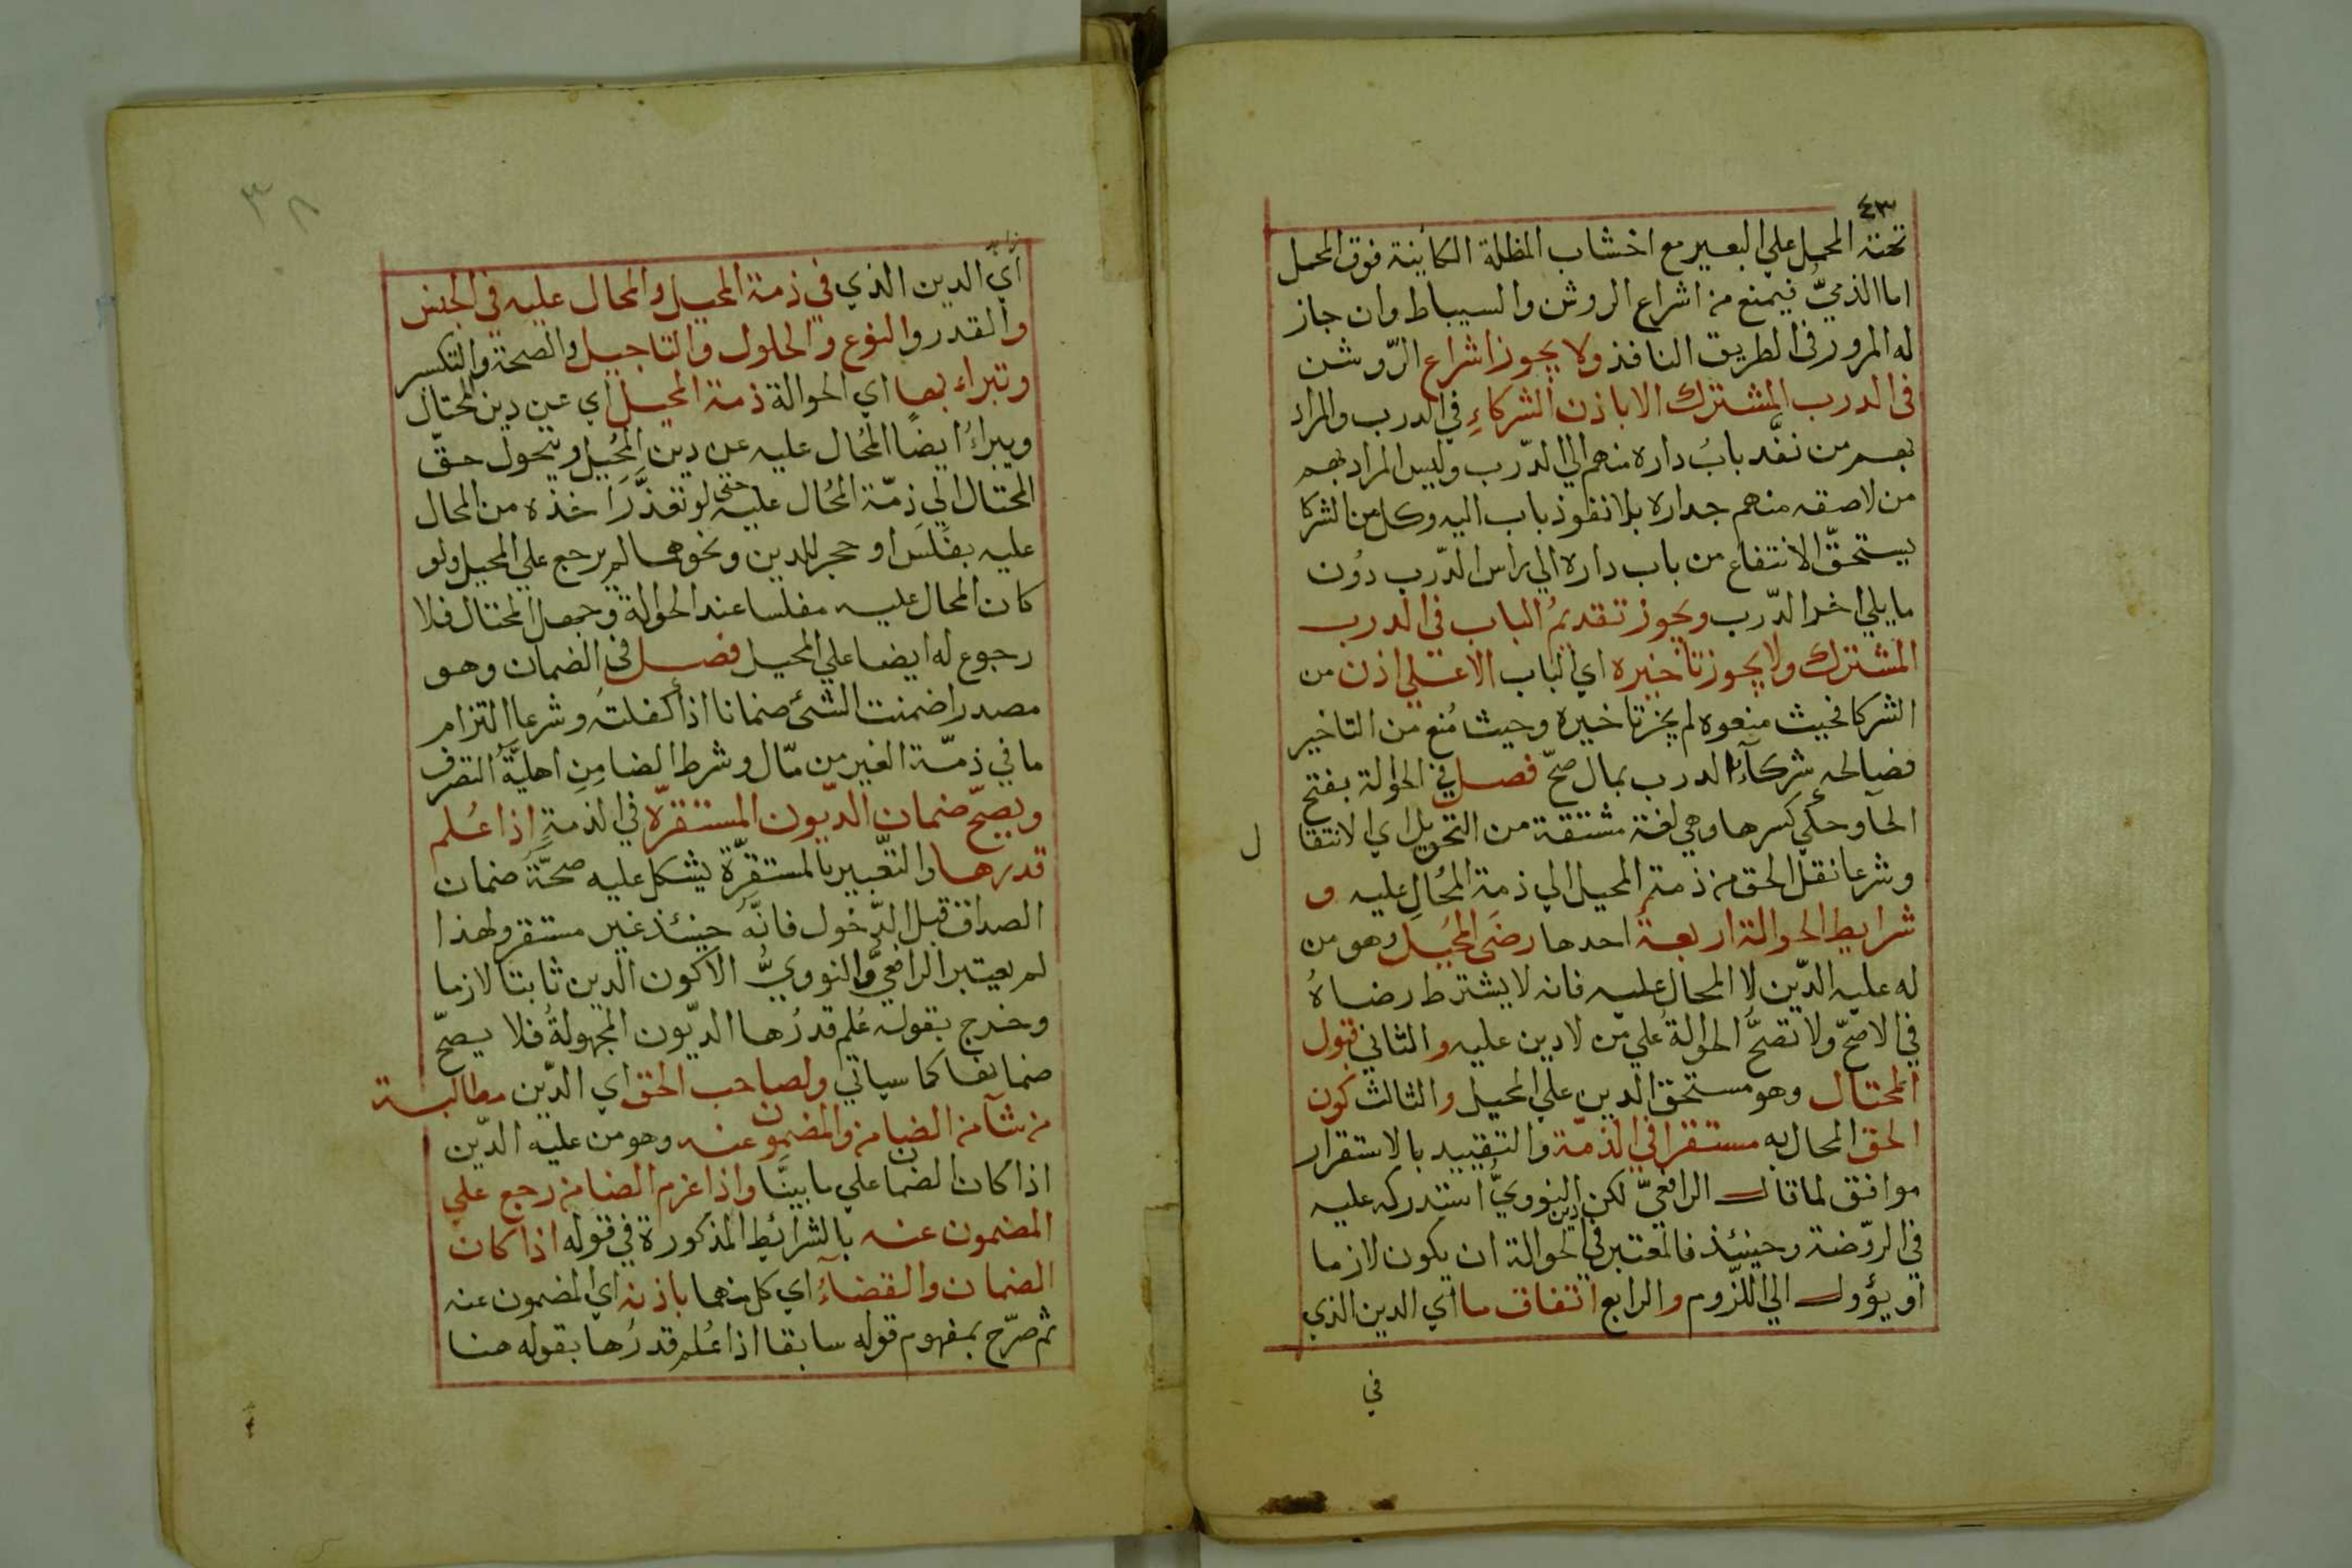 ٤٣
تحته المحمل علي البعير مع اخشاب المظلة الكاينة فوق المحمل
اما الذميُّ فيمنع من اشراع الروشن والسيباط وان جاز
له المرور في الطريق النافذ ولا يجوز اشراع الرّوشن
في الدرب المشترك الا باذن الشركاءِ في الدرب والمراد
بهم من نفَّد بابُ داره منهم الي الدّرب وليس المراد بهم
من لاصقه منهم جداره بلا نفوذ باب اليه وكل من الشركا
يستحقّ الانتفاع من باب داره الي راس الدّرب دوُن
ما يلي اخر الدّرب ويجوز تقديمُ الباب في الدرب
المشترك ولا يجوز تاخيره اي الباب الا علي اذن من
الشركا فحيث منعوه لم يجز تاخيره وحيث مُنع من التاخير
فصالحه شركآءُ الدرب بمال صحّ فصل في الحوالة بفتح
الحآ وحكي كسرها وهي لغة مشتقة من التحويل اي الانتقا
ل
وشرعا نقل الحق من ذمة المحيل الي ذمة المُحالِ عليه و
شرايط الحوالة اربعة احدها رضَي المحُيل وهو من
له عليه الدّين لا المحال عليه فانه لا يشترط رضاهُ
في الاصحّ ولا تصحُّ الحوالةُ علي من لا دين عليه والثاني قبول
المحتال وهو مستحق الدين علي المحيل والثالث كون
الحق المحال به مستقرا في الذمّة والتقييد بالاستقرار
موافق لما قال الرافعيّ لكن النوويُّ استدركه عليه
في الروّضة وحينئذ فالمعتبر في دين الحوالة ان يكون لازما
او يؤول الي اللزّوم والرابع اتفاق ما اي الدين الذي
في
٣٨
اي الدين الذي في ذمة المحيل والمحال عليه في الجنس
والقدر والنوع والحلول والتاجيل والصحة والتكسر
وتبراء بها اي الحوالة ذمة المحيل اي عن دين المحتال
ويبراءُ ايضًا المُحال عليه عن دين المُحِيل ويتحول حقّ
المحتال الي ذِمّة المحُال عليه حتي لو تعذَّر اخذه من المحال
عليه بفلَس او جحر للدين ونحوهما لم يرجع علي المحيل ولو
كان المحال عليه مفلسا عند الحوالة وجهل المحتال فلا
رجوع له ايضا علي المحيل فصل في الضمان وهو
مصدر اضمنت الشئ ضمانا اذا كفلته وشرعا التزام
ما في ذمّة الغير من مّال وشرط الضامِنِ اهليَّةُ التصرف
ويصحّ ضمان الديّون المستقرّة في الذمة اذا عُلم
قدرها والتعّبير بالمستقرّة يشكل عليه صحَّةُ ضمان
الصداق قبل الدّخول فانَّه حينئذ غير مستقر ولهذا
لم يعتبر الرافعيُّ والنوويُّ الا كون الدين ثابتا لازما
وخرج بقوله عُلم قدرُها الديّون المجهولةُ فلا يصحّ
ضمانها كما سياتي ولصاحب الحق اي الدّين مطالبة
من شآ من الضامن والمضمون عنه وهو من عليه الدّين
اذا كان الضمان علي ما بينَّا واذا غرم الضامن رجع علي
المضمون عنه بالشرائط المذكورة في قوله اذا كان
الضمان والقضآءُ اي كل منهما باذنه اي المضمون عنه
ثم صرّح بمفهوم قوله سابقا اذا عُلم قدرُها بقوله هنا